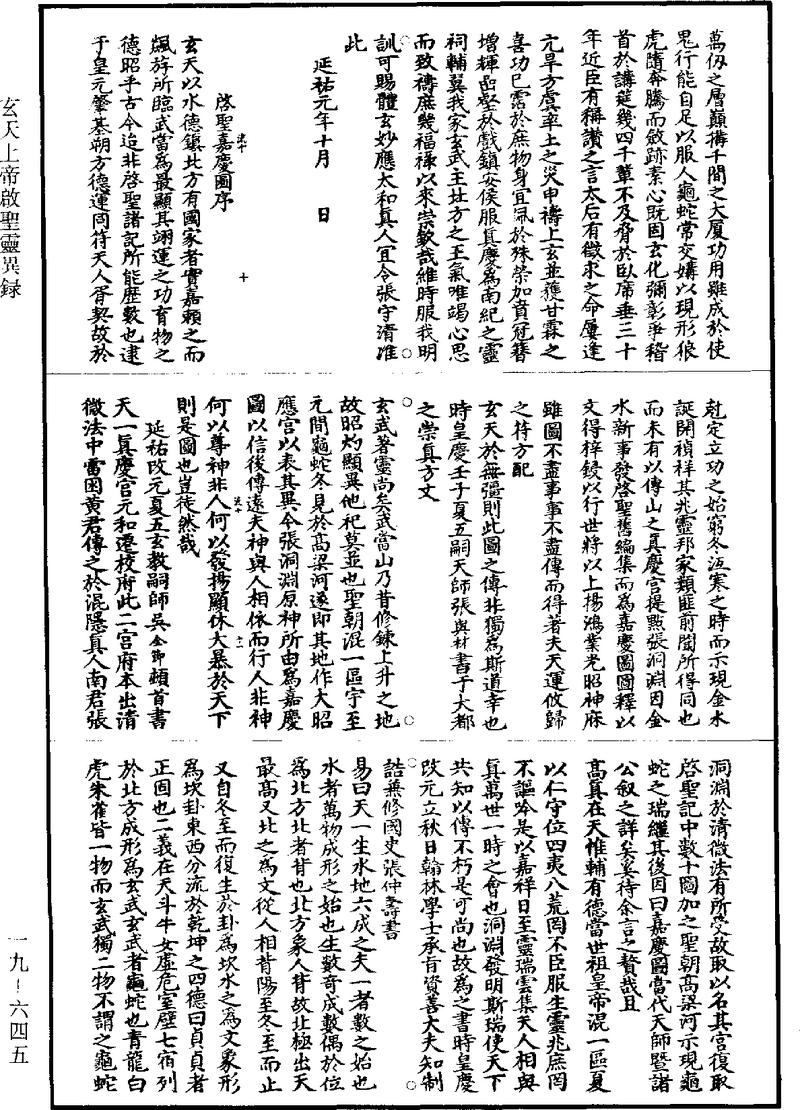 萬仭之層巔搆千間之大厦功用雖成於使
鬼行能自足以服人龜蛇常交媾以現形狼
虎隨奔騰而斂跡素心既固玄化彌彰爭稽
首於講筵幾四千輩不及脅於臥席垂三十
年近臣有稱讚之言太后有徵求之命屢逢
亢旱方虞率土之災申禱上玄並獲甘霖之
喜功已霑於庶物身宜佩於殊榮加賁冠簪
增輝嵒壑於戲鎮安侯服真慶爲南紀之靈
祠輔翼我家玄武主北方之王氣唯竭心思
而致禱庶幾福祿以來崇歟哉維時服我明
訓可賜體玄妙應太和真人宜令張守清准
此
延祐元年十月　日
啓聖嘉慶圖序
玄天以水德鎮北方有國家者實嘉賴之而
飈斿所臨武當爲最顯其翊運之功育物之
德昭乎古今迨非啓聖諸記所能歷數也逮
于皇元肇基朔方德運同符天人胥契故於
剋定立功之始窮冬沍寒之時而示現金水
誕開禎祥其兆靈邦家類匪前聞所得同也
而未有以傳山之真慶宮提點張洞淵因金
水新事發啓聖舊編集而爲嘉慶圖圖釋以
文得梓鋟以行世將以上揚鴻業光昭神庥
雖圖不盡事事不盡傳而得著夫天運攸歸
之符方配
玄天於無彊則此圖之傳非獨爲斯道幸也
時皇慶壬子夏五嗣天師張與材書于大都
之崇真方丈
玄武著靈尚矣武當山乃昔修鍊上升之地
故昭灼顯異他祀莫並也聖朝混一區宇至
元間龜蛇冬見於高梁河遂即其地作大昭
應宮以表其異今張洞淵原神所由爲嘉慶
圖以信後傳遠夫神與人相依而行人非神
何以尊神非人何以發揚顯休大暴於天下
則是圖也豈徒然哉
延祐改元夏五玄教嗣師吳全節頓首書
天一真慶宮元和遷校府此二宮府本出清
微法中雷囦黃君傳之於混隱真人南君張
洞淵於清微法有所受故取以名其宮復取
啓聖記中數十圖加之聖朝高梁河示現龜
蛇之瑞繼其後因曰嘉慶圖當代天師暨諸
公叙之詳矣奚待余言之贅哉且
高真在天惟輔有德當世祖皇帝混一區夏
以仁守位四夷八荒罔不臣服生靈兆庶罔
不謳吟是以嘉祥日至靈瑞雲集天人相與
真萬世一時之會也洞淵發明斯瑞使天下
共知以傳不朽是可尚也故爲之書時皇慶
改元立秋日翰林學士承旨資善大夫知制
誥兼修國史張仲壽書
易曰天一生水地六成之夫一者數之始也
水者萬物成形之始也生數奇成數偶於位
爲北方北者背也北方象人背故北極出天
最高又北之爲文從人相背陽至冬至而止
又自冬至而復生於卦爲坎水之爲文象形
爲坎卦東西分流於乾坤之四德曰貞貞者
正固也二義在天斗牛女虛危室壁七宿列
於北方成形爲玄武玄武者龜蛇也青龍白
虎朱雀皆一物而玄武獨二物不謂之龜蛇
玄天上帝啟聖靈異録
一九－六四五